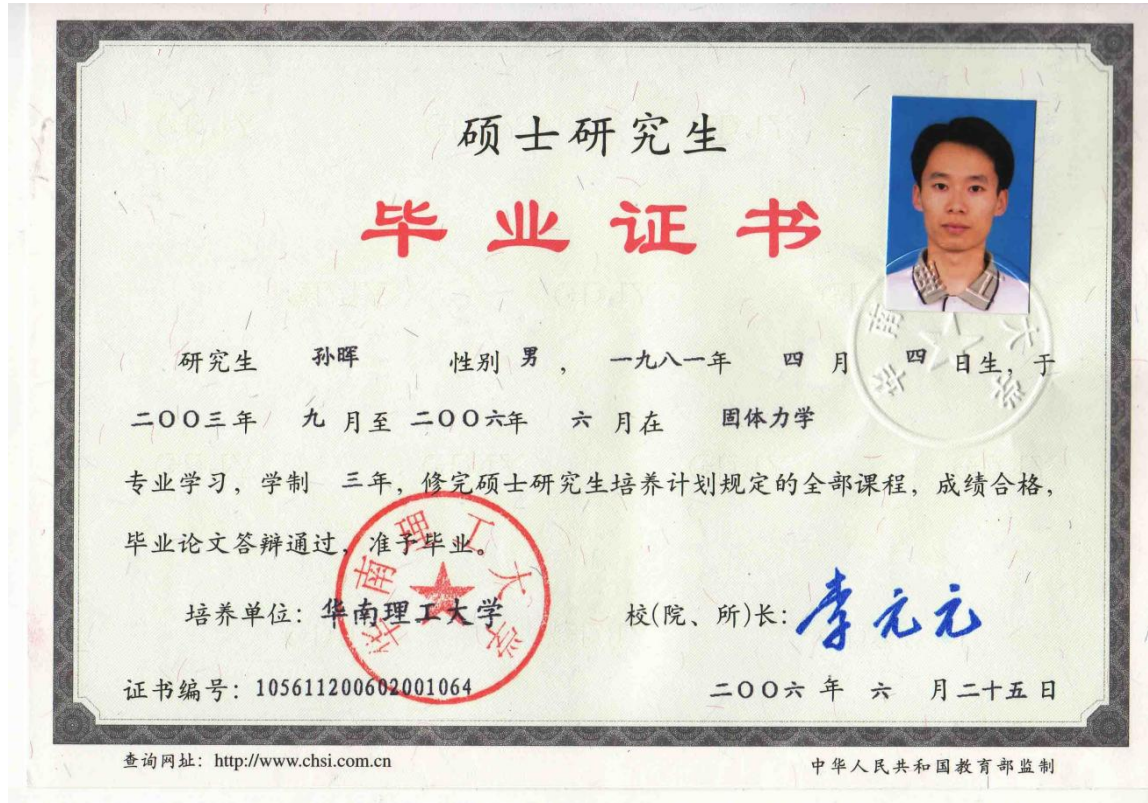 硕士研究生
毕业证书
研究生 孙晖 性别 男 ，一九八一年 四 月 四 日生，于
二〇〇三年 九 月至 二〇〇六年 六 月在 固体力学
专业学习，学制 三年，修完硕士研究生培养计划规定的全部课程，成绩合格，
毕业论文答辩通过，准予毕业。
培养单位：华南理工大学 校(院、所)长：李元元
华南理工大学
华南理工大学
证书编号：105611200602001064 二〇〇六 年 六 月二十五日
查询网址：http://www.chsi.com.cn 中华人民共和国教育部监制